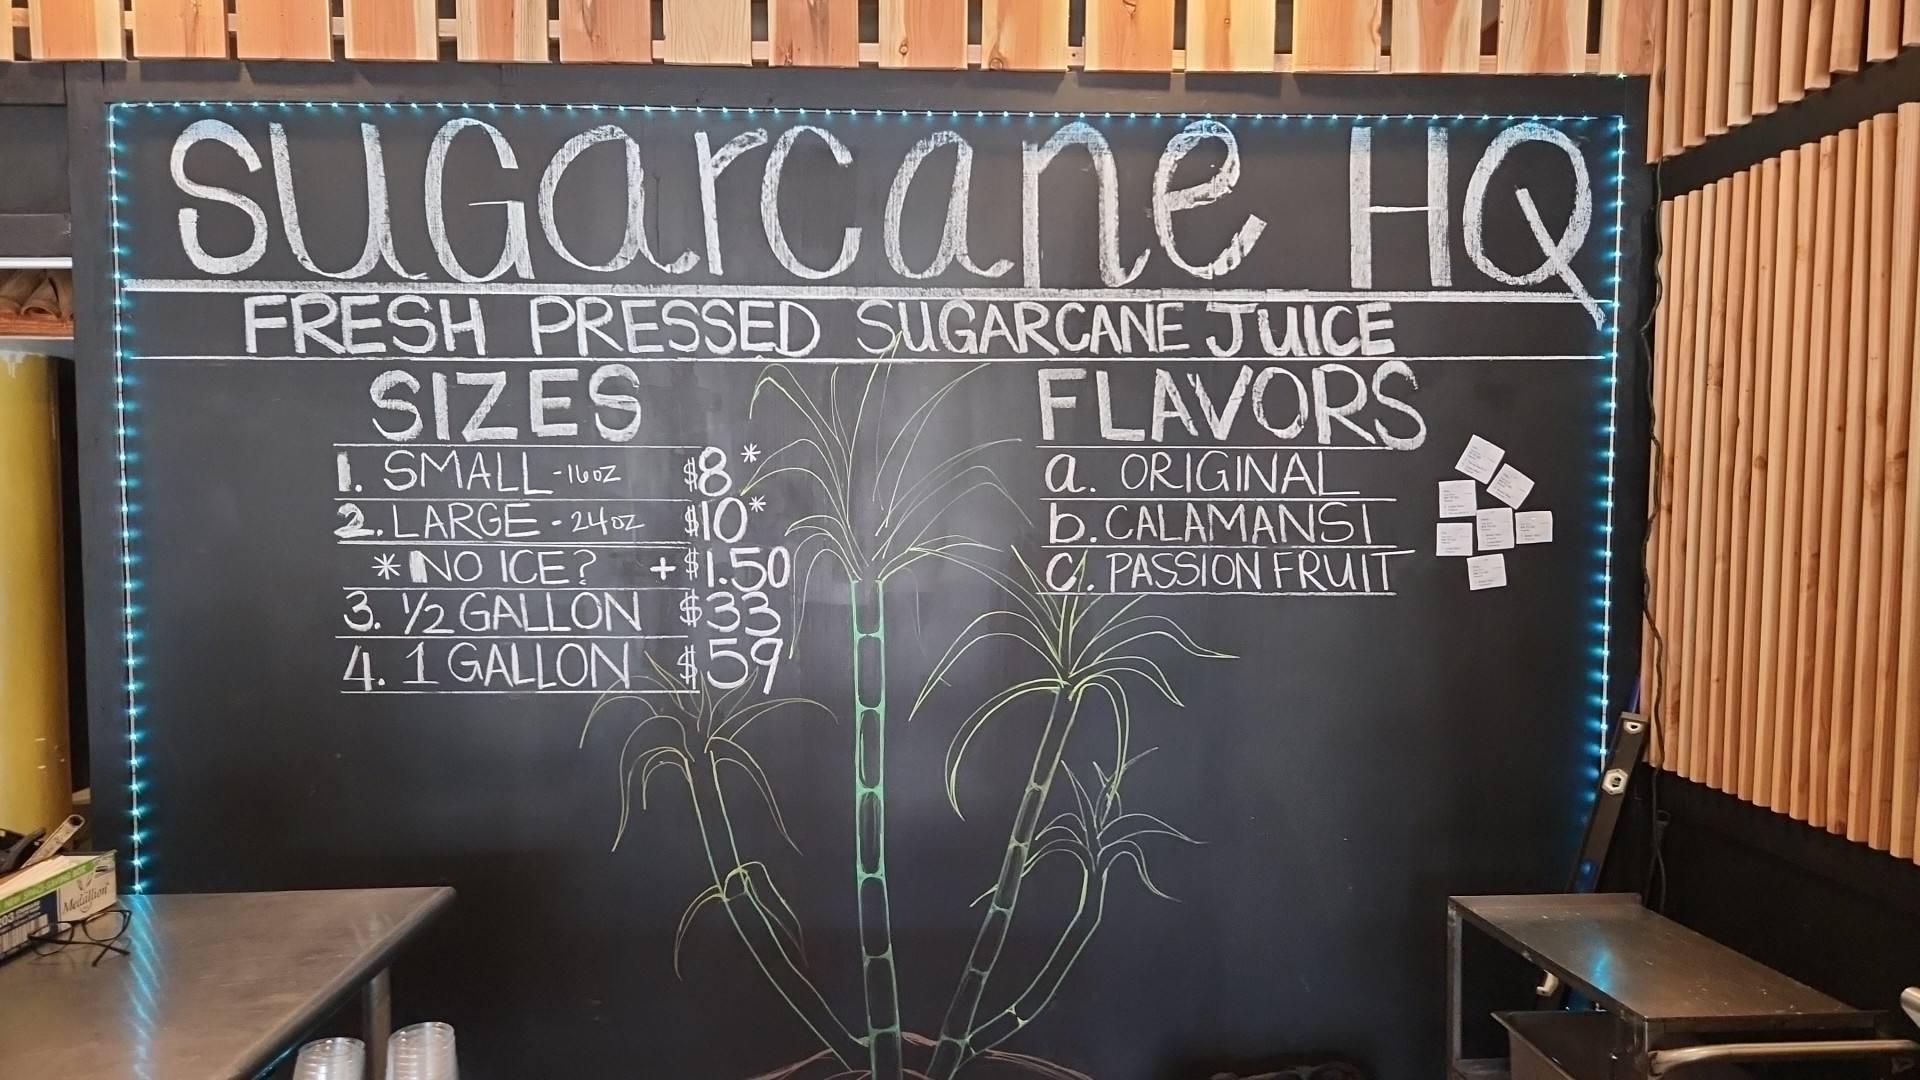 SUGarcane HQ
FRESH PRESSED SUGARCANE JUICE
SIZES
1. SMALL - 16oz $8*
2. LARGE - 24oz $10*
* NO ICE? + $1.50
3. 1/2 GALLON $33
4. 1 GALLON $59
FLAVORS
a. ORIGINAL
b. CALAMANSI
c. PASSION FRUIT
Medallion